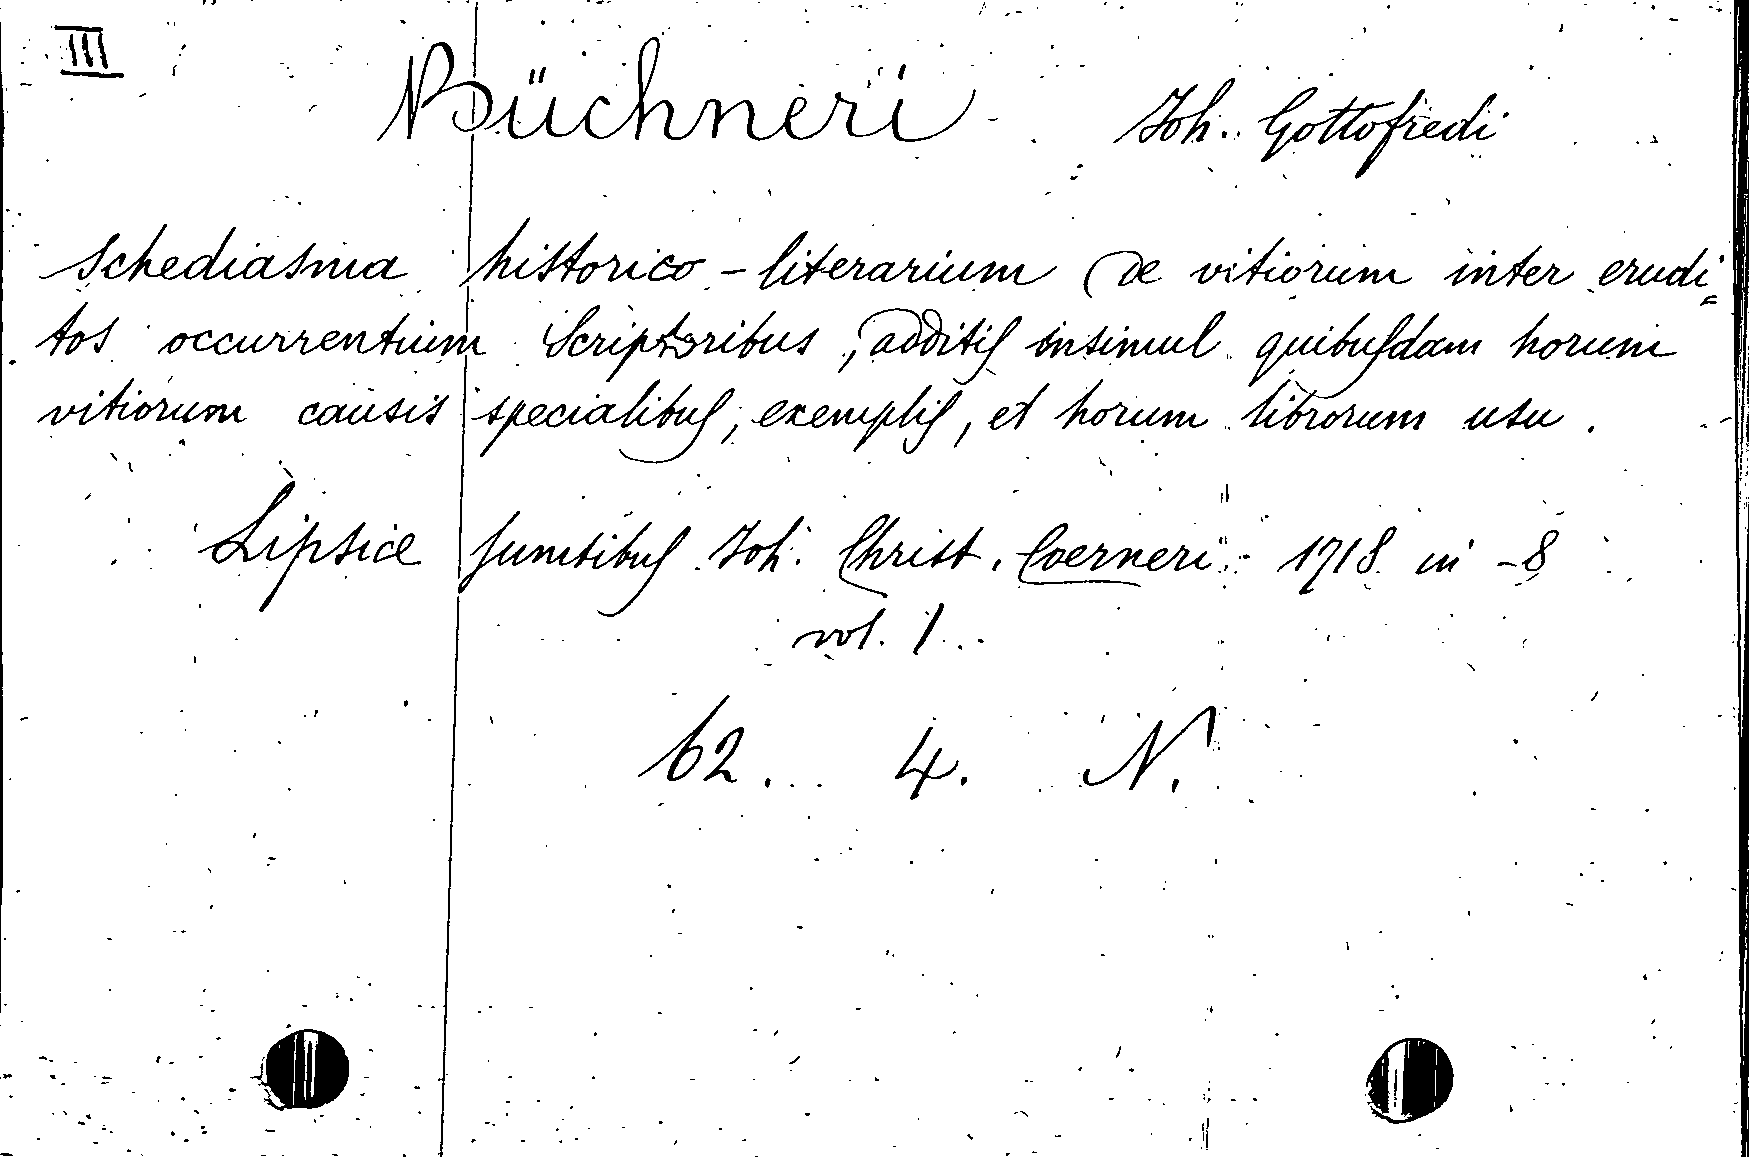 III
Büchneri Joh. Gottofredi
Schediasma historico-literarium De vitiorum inter erudi=
tos occurrentium Scriptoribus, additis insimul quibusdam horum
vitiorum causis specialibus, exemplis, et horum librorum usu.
Lipsiæ sumtibus Joh. Christ. Coerneri 1718 in -8
vol. 1.
62. 4. N.